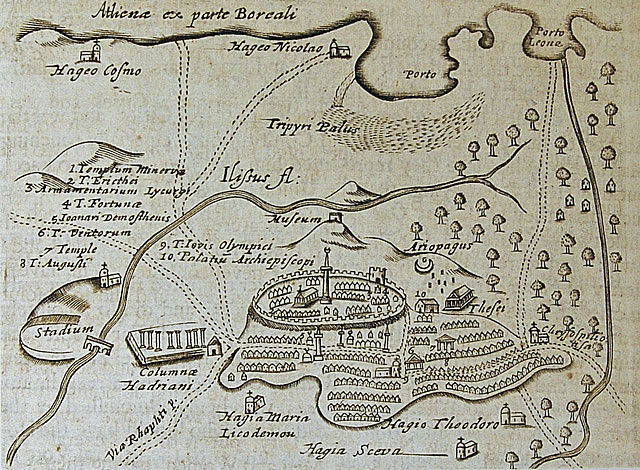 Athenæ ex parte Boreali
Hageo Nicolao
Porto Leonæ
Hageo Cosmo
Porto
Tripyri Palus
1. Templum Minervæ
2 T. Ericthei
3. Armamentarium Lycurgi
4 T. Fortunæ
5. Ioanari Demosthenis
6: T. Victorum
7 Temple
8 T: Augusti
Ilissus fl:
Museum
9. T: Iovis Olympici
10. Palatiū Archiepiscopi
Ariopagus
10
Thesei
Stadium
Columnæ
Hadriani
Hagia Maria
Licodemou
Hagio Theodoro
Via Rhaphti P.
Hagia Sceva